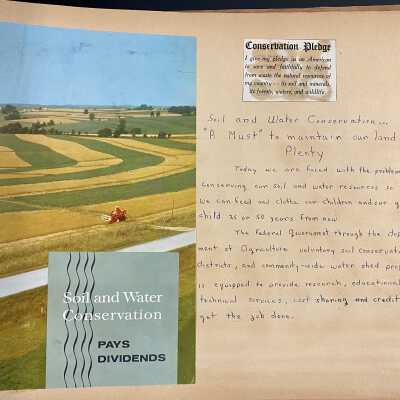 Soil and Water
Conservation
PAYS
DIVIDENDS
Conservation Pledge
I give my pledge as an American
to save and faithfully to defend
from waste the natural resources of
my country - its soil and minerals,
its forests, waters, and wildlife.
Soil and Water Conservation...
"A Must" to maintain our land
Plenty
Today we are faced with the problem
conserving our soil and water resources so
we can feed and clothe our children and our g
child 25 or 50 years from now.
The federal Government through the dep
ment of Agriculture voluntary soil conservatio
districts, and community-wide water shed proj
is equipped to provide research, educational
technical services, cost sharing and credit
get the job done.